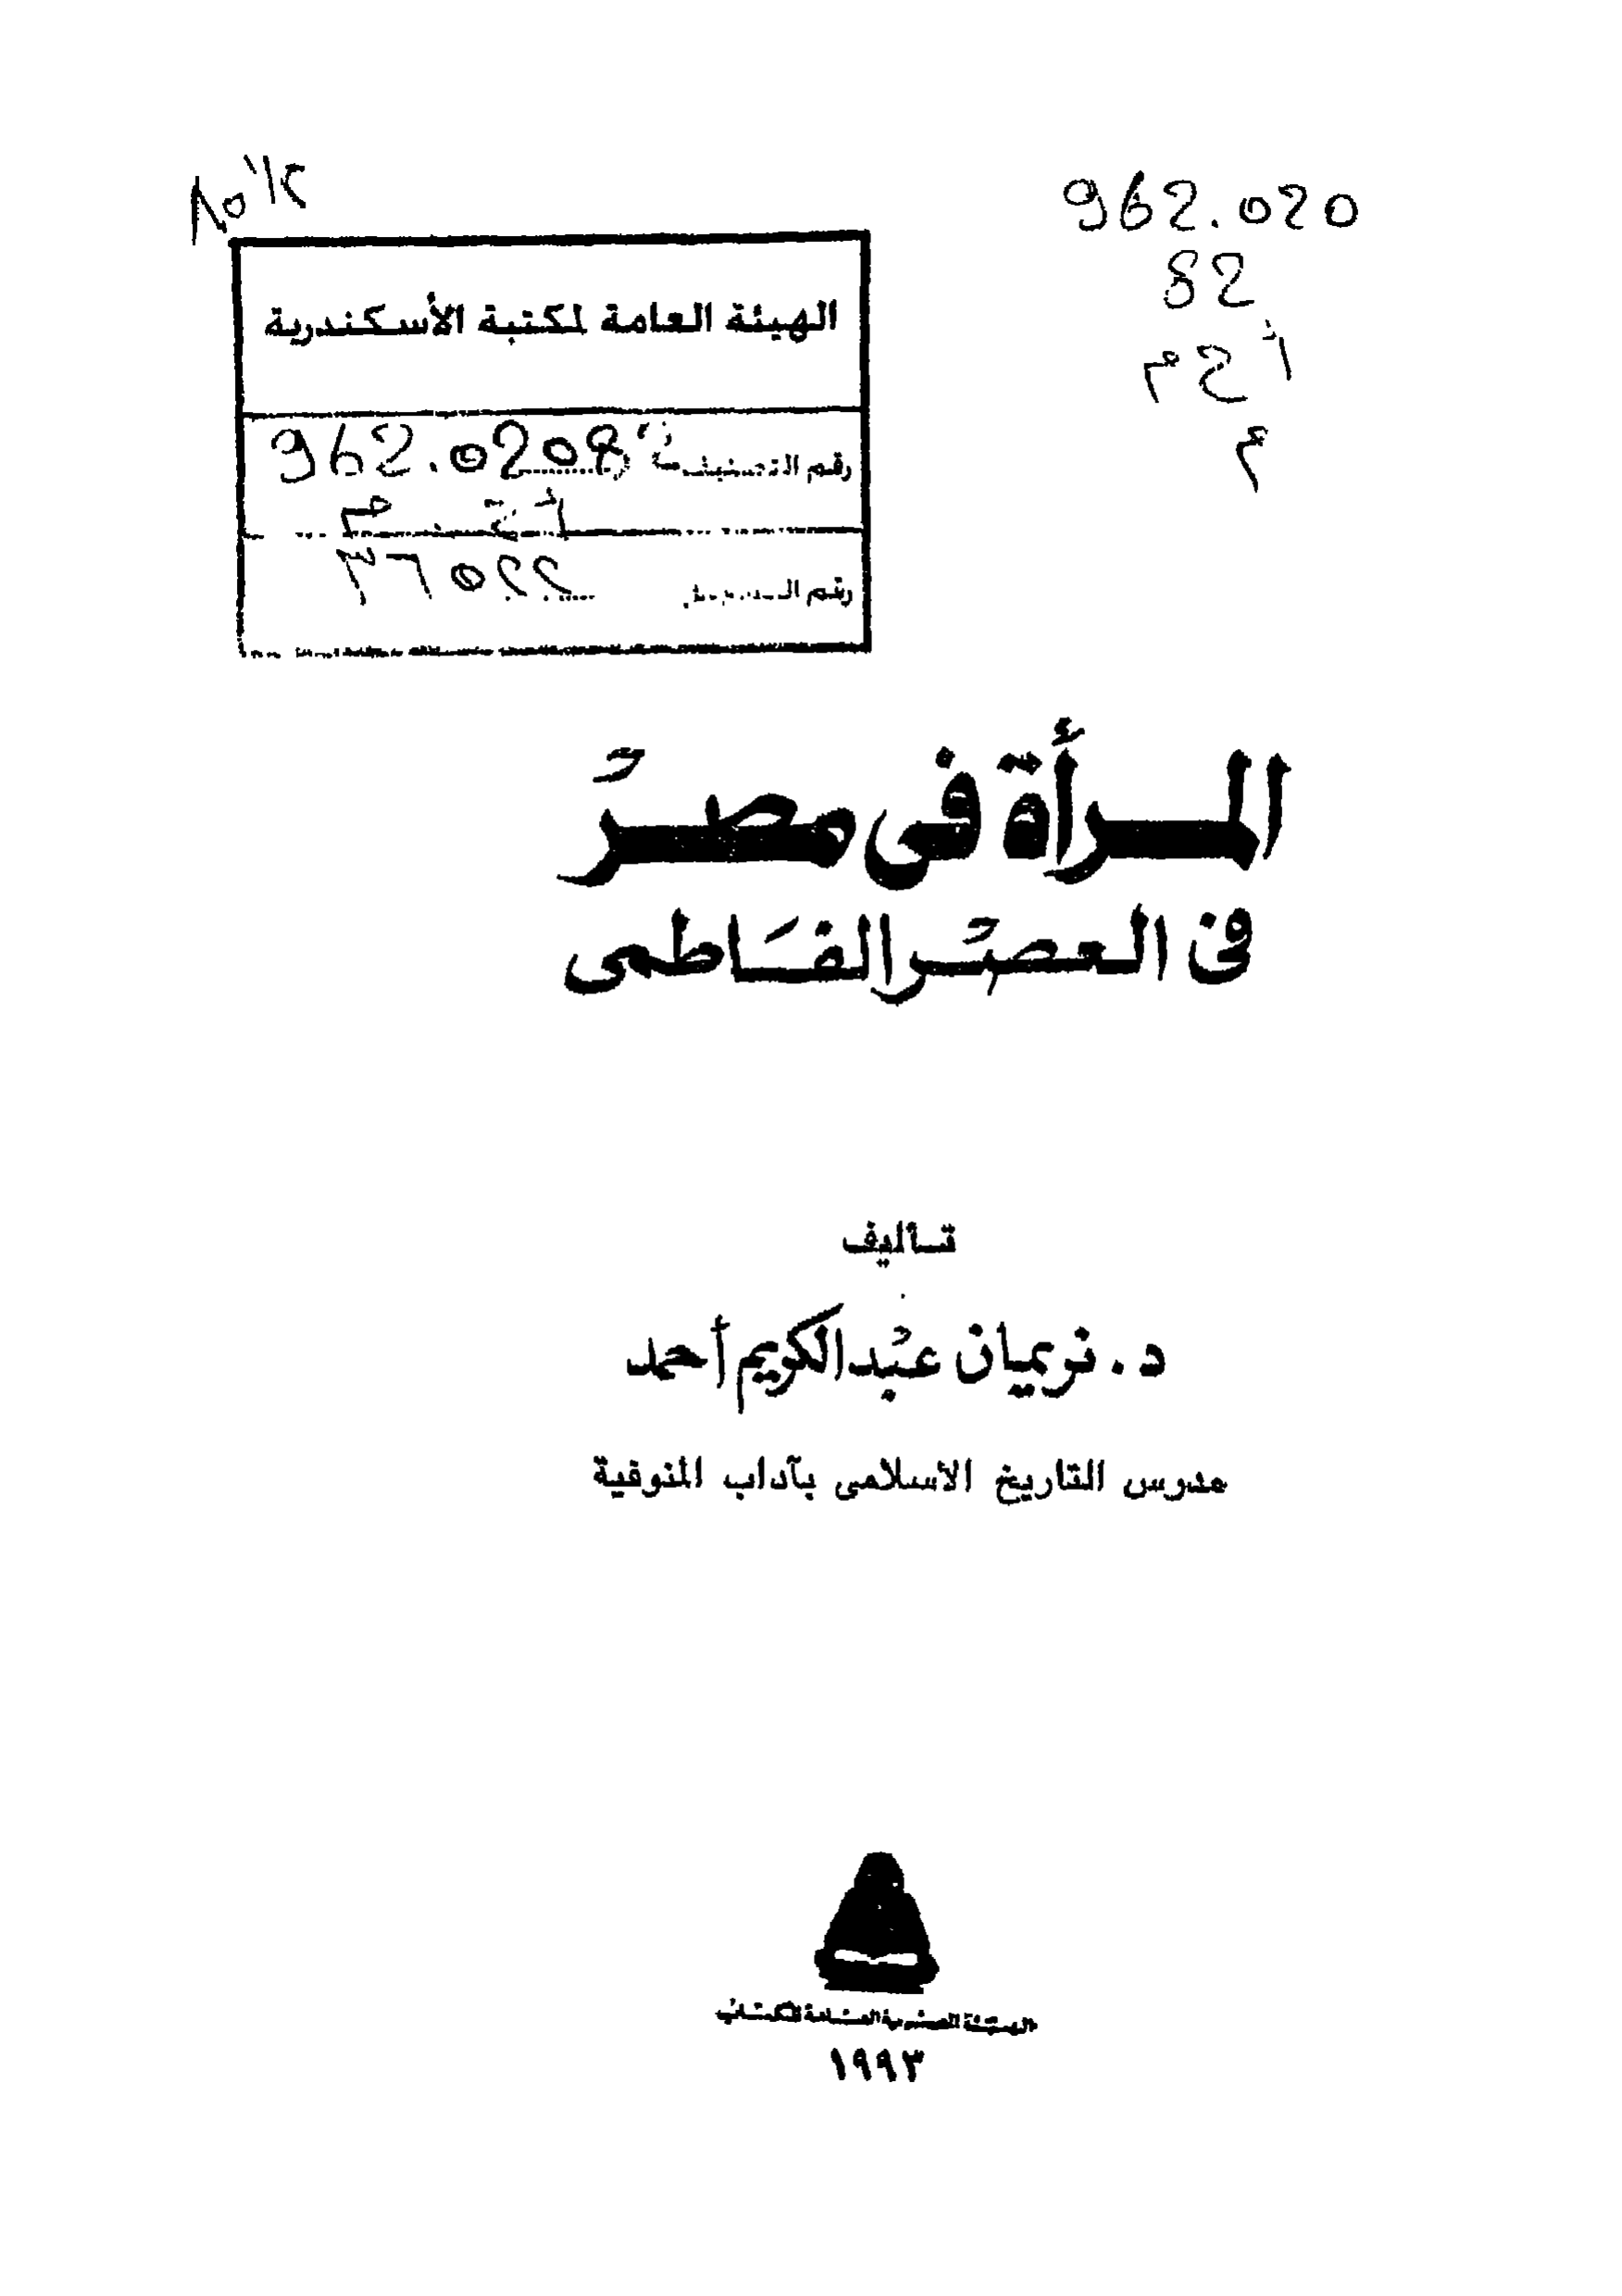 962.020
82
م
الهيئة العامة لمكتبة الأسكندرية
رقم التصنيف 962.0208
رقم التسجيل ٣٦٥٢٢
المرأة فى مصر
فى العصر الفاطمى
تأليف
د. نريمان عبد الكريم أحمد
مدرس التاريخ الاسلامى بآداب المنوفية
الهيئة المصرية العامة للكتاب
١٩٩٣